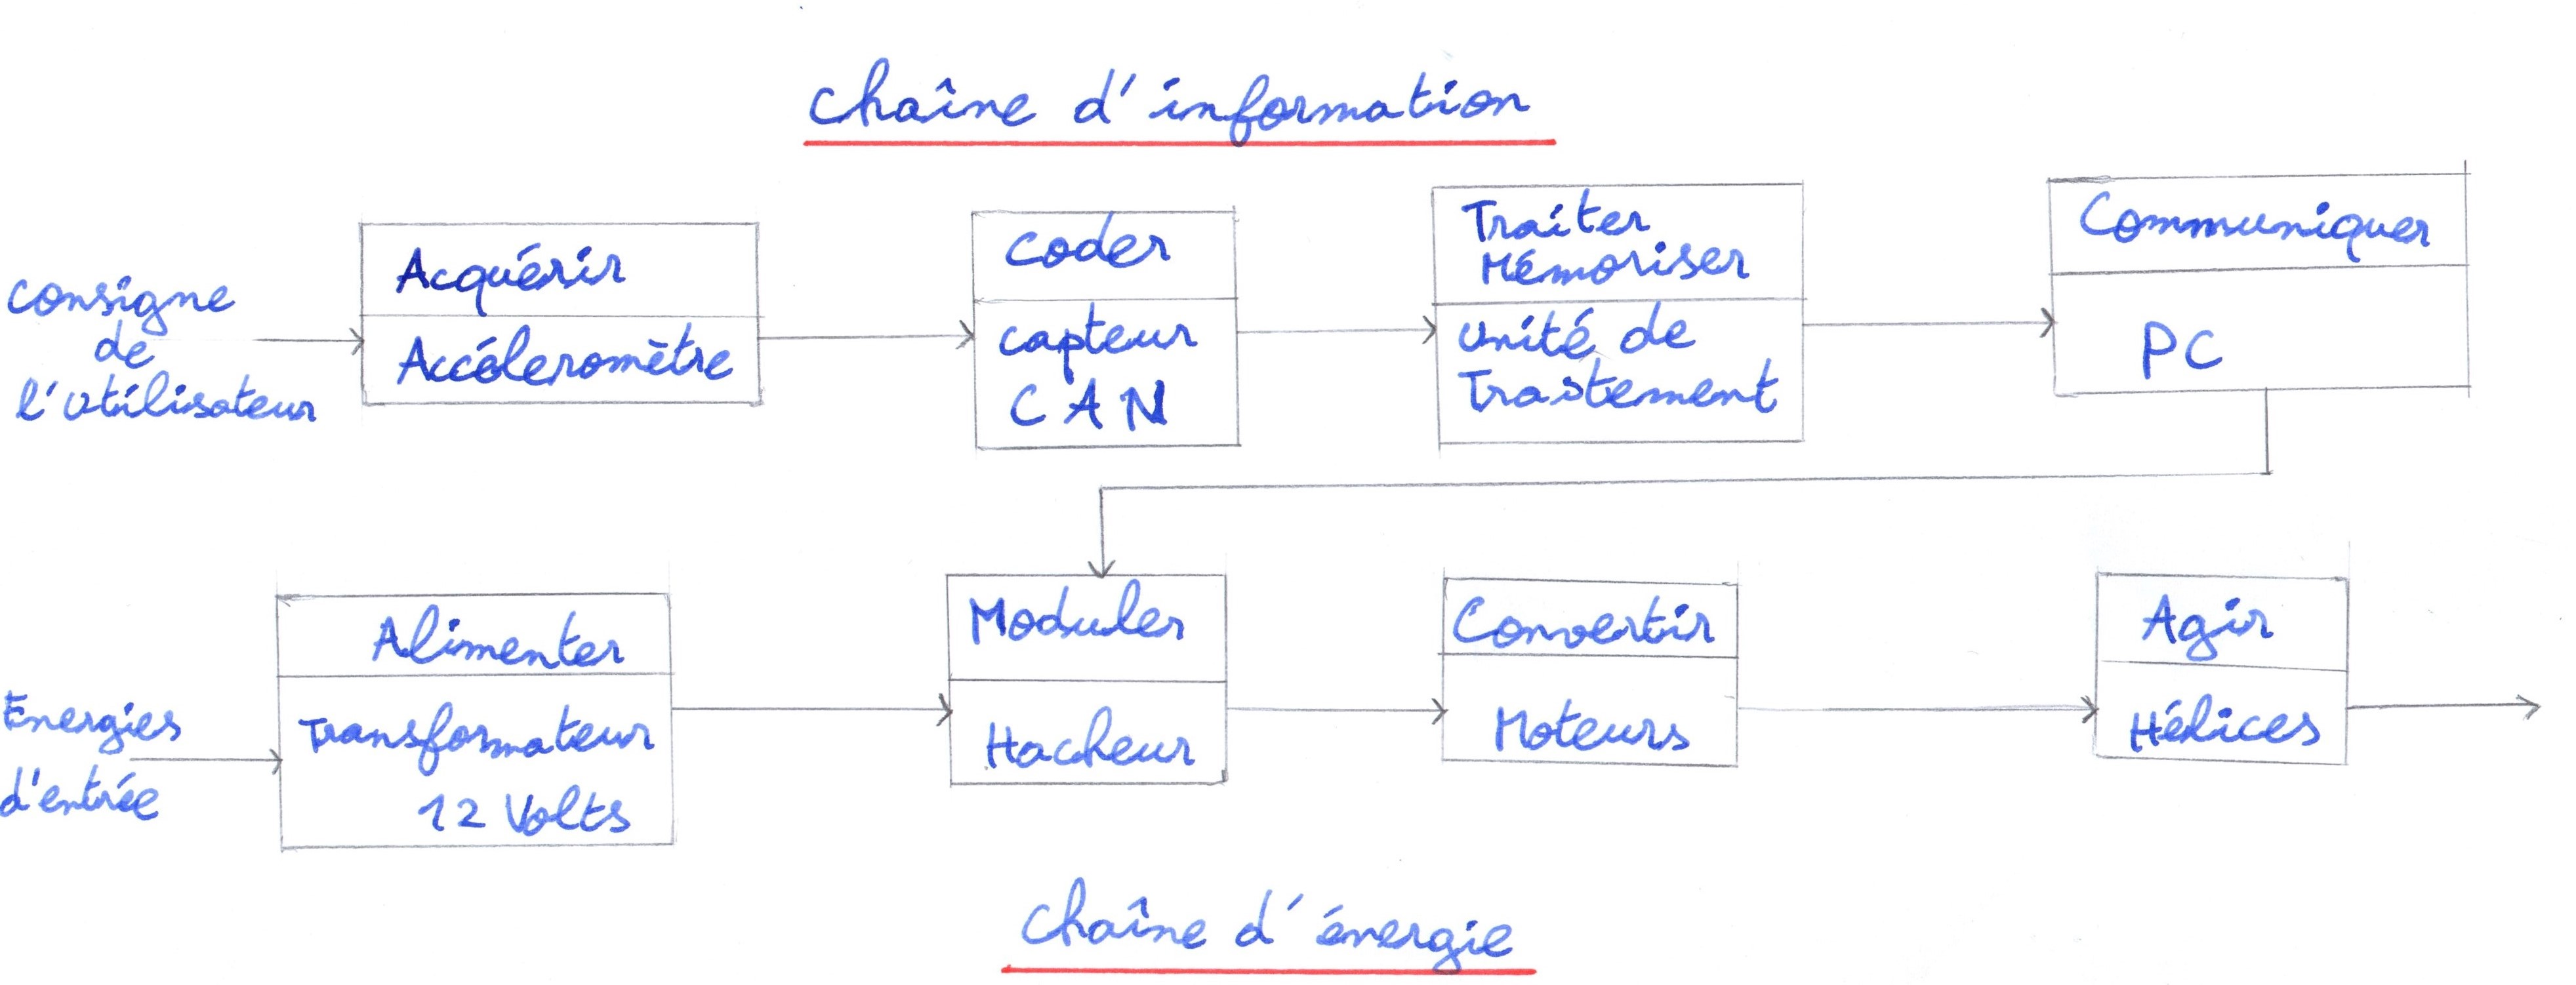 Chaîne d'information
consigne
de
l'utilisateur
Acquérir
Accéleromètre
Coder
capteur
CAN
Traiter
Mémoriser
Unité de
Traitement
Communiquer
PC
Energies
d'entrée
Alimenter
Transformateur
12 Volts
Moduler
Hacheur
Convertir
Moteurs
Agir
Hélices
Chaîne d'énergie